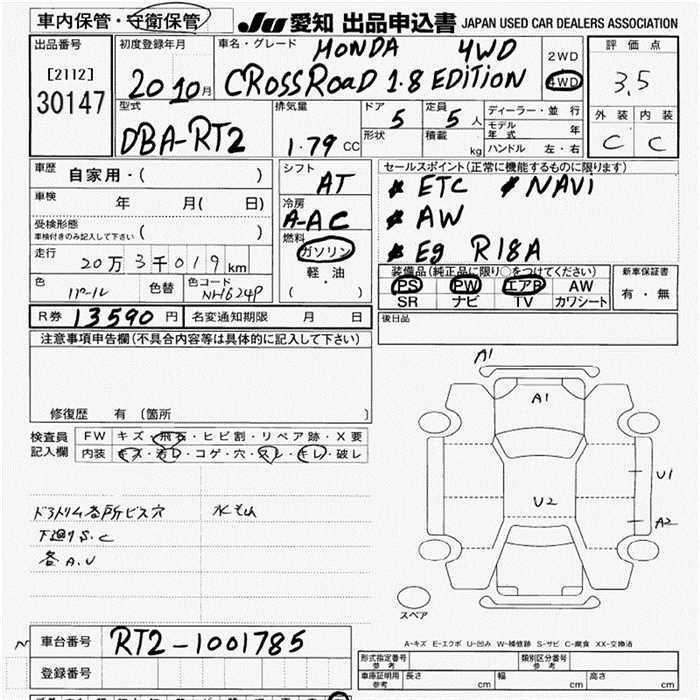 車内保管・守衛保管 JU 愛知 出品申込書 JAPAN USED CAR DEALERS ASSOCIATION
出品番号 [2112] 30147
初度登録年月 20 10月
車名・グレード HONDA 4WD
CROSSROAD 1.8 EDITION
2WD
4WD
評価点 3.5
外装 内装
C C
型式 DBA-RT2
排気量 1.79 CC
ドア 5
定員 5 人
形状
積載 kg
ディーラー・並行
モデル年式 年
ハンドル 左・右
車歴 自家用・( )
車検 年 月( 日)
受検形態
車検付きのみ記入して下さい ( )
走行 20万3千019km
色 パール 色替 色コード NH624P
シフト AT
冷房 A-AC
燃料 ガソリン
軽・油
( )
セールスポイント(正常に機能するものに限ります)
ETC NAVI
AW
Eg R18A
装備品(純正品に限り○をつけてください)
PS PW エアB AW
SR ナビ TV カワシート
新車保証書
有・無
R券 13590 円 名変通知期限 月 日
後日品
注意事項申告欄(不具合内容等は具体的に記入して下さい)
修復歴 有 〔箇所 〕
検査員記入欄
FW キズ・飛石・ヒビ割・リペア跡・X要
内装 キズ・汚レ・コゲ・穴・スレ・キレ・破レ
ドアトリム各所ビス穴
下廻りS.C
各A.U
A1
A1
U2
U1
A2
スペア
A-キズ E-エクボ U-凹み W-補修跡 S-サビ C-腐食 XX-交換済
車台番号 RT2-1001785
登録番号
形式指定番号 参考
類別区分番号 参考
車庫証明用 参考 長さ cm 幅 cm 高さ cm